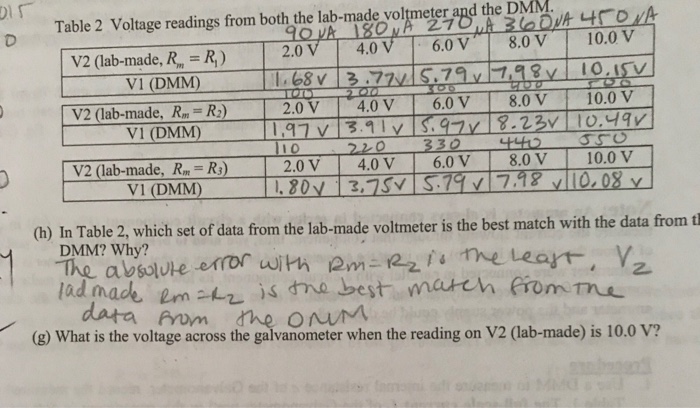 Table 2 Voltage readings from both the lab-made voltmeter and the DMM.
90 μA 180 μA 270 μA 360 μA 450 μA
V2 (lab-made, Rm = R1) 2.0 V 4.0 V 6.0 V 8.0 V 10.0 V
V1 (DMM) 1.68V 3.77V 5.79V 7.98V 10.15V
100 200 300 400 500
V2 (lab-made, Rm = R2) 2.0 V 4.0 V 6.0 V 8.0 V 10.0 V
V1 (DMM) 1.97V 3.91V 5.97V 8.23V 10.49V
110 220 330 440 550
V2 (lab-made, Rm = R3) 2.0 V 4.0 V 6.0 V 8.0 V 10.0 V
V1 (DMM) 1.80V 3.75V 5.79V 7.98V 10.08V
(h) In Table 2, which set of data from the lab-made voltmeter is the best match with the data from
DMM? Why?
The absolute error with Rm=R2 is the least. V2
lad made Rm=R2 is the best match from the
data from the DMM
(g) What is the voltage across the galvanometer when the reading on V2 (lab-made) is 10.0 V?